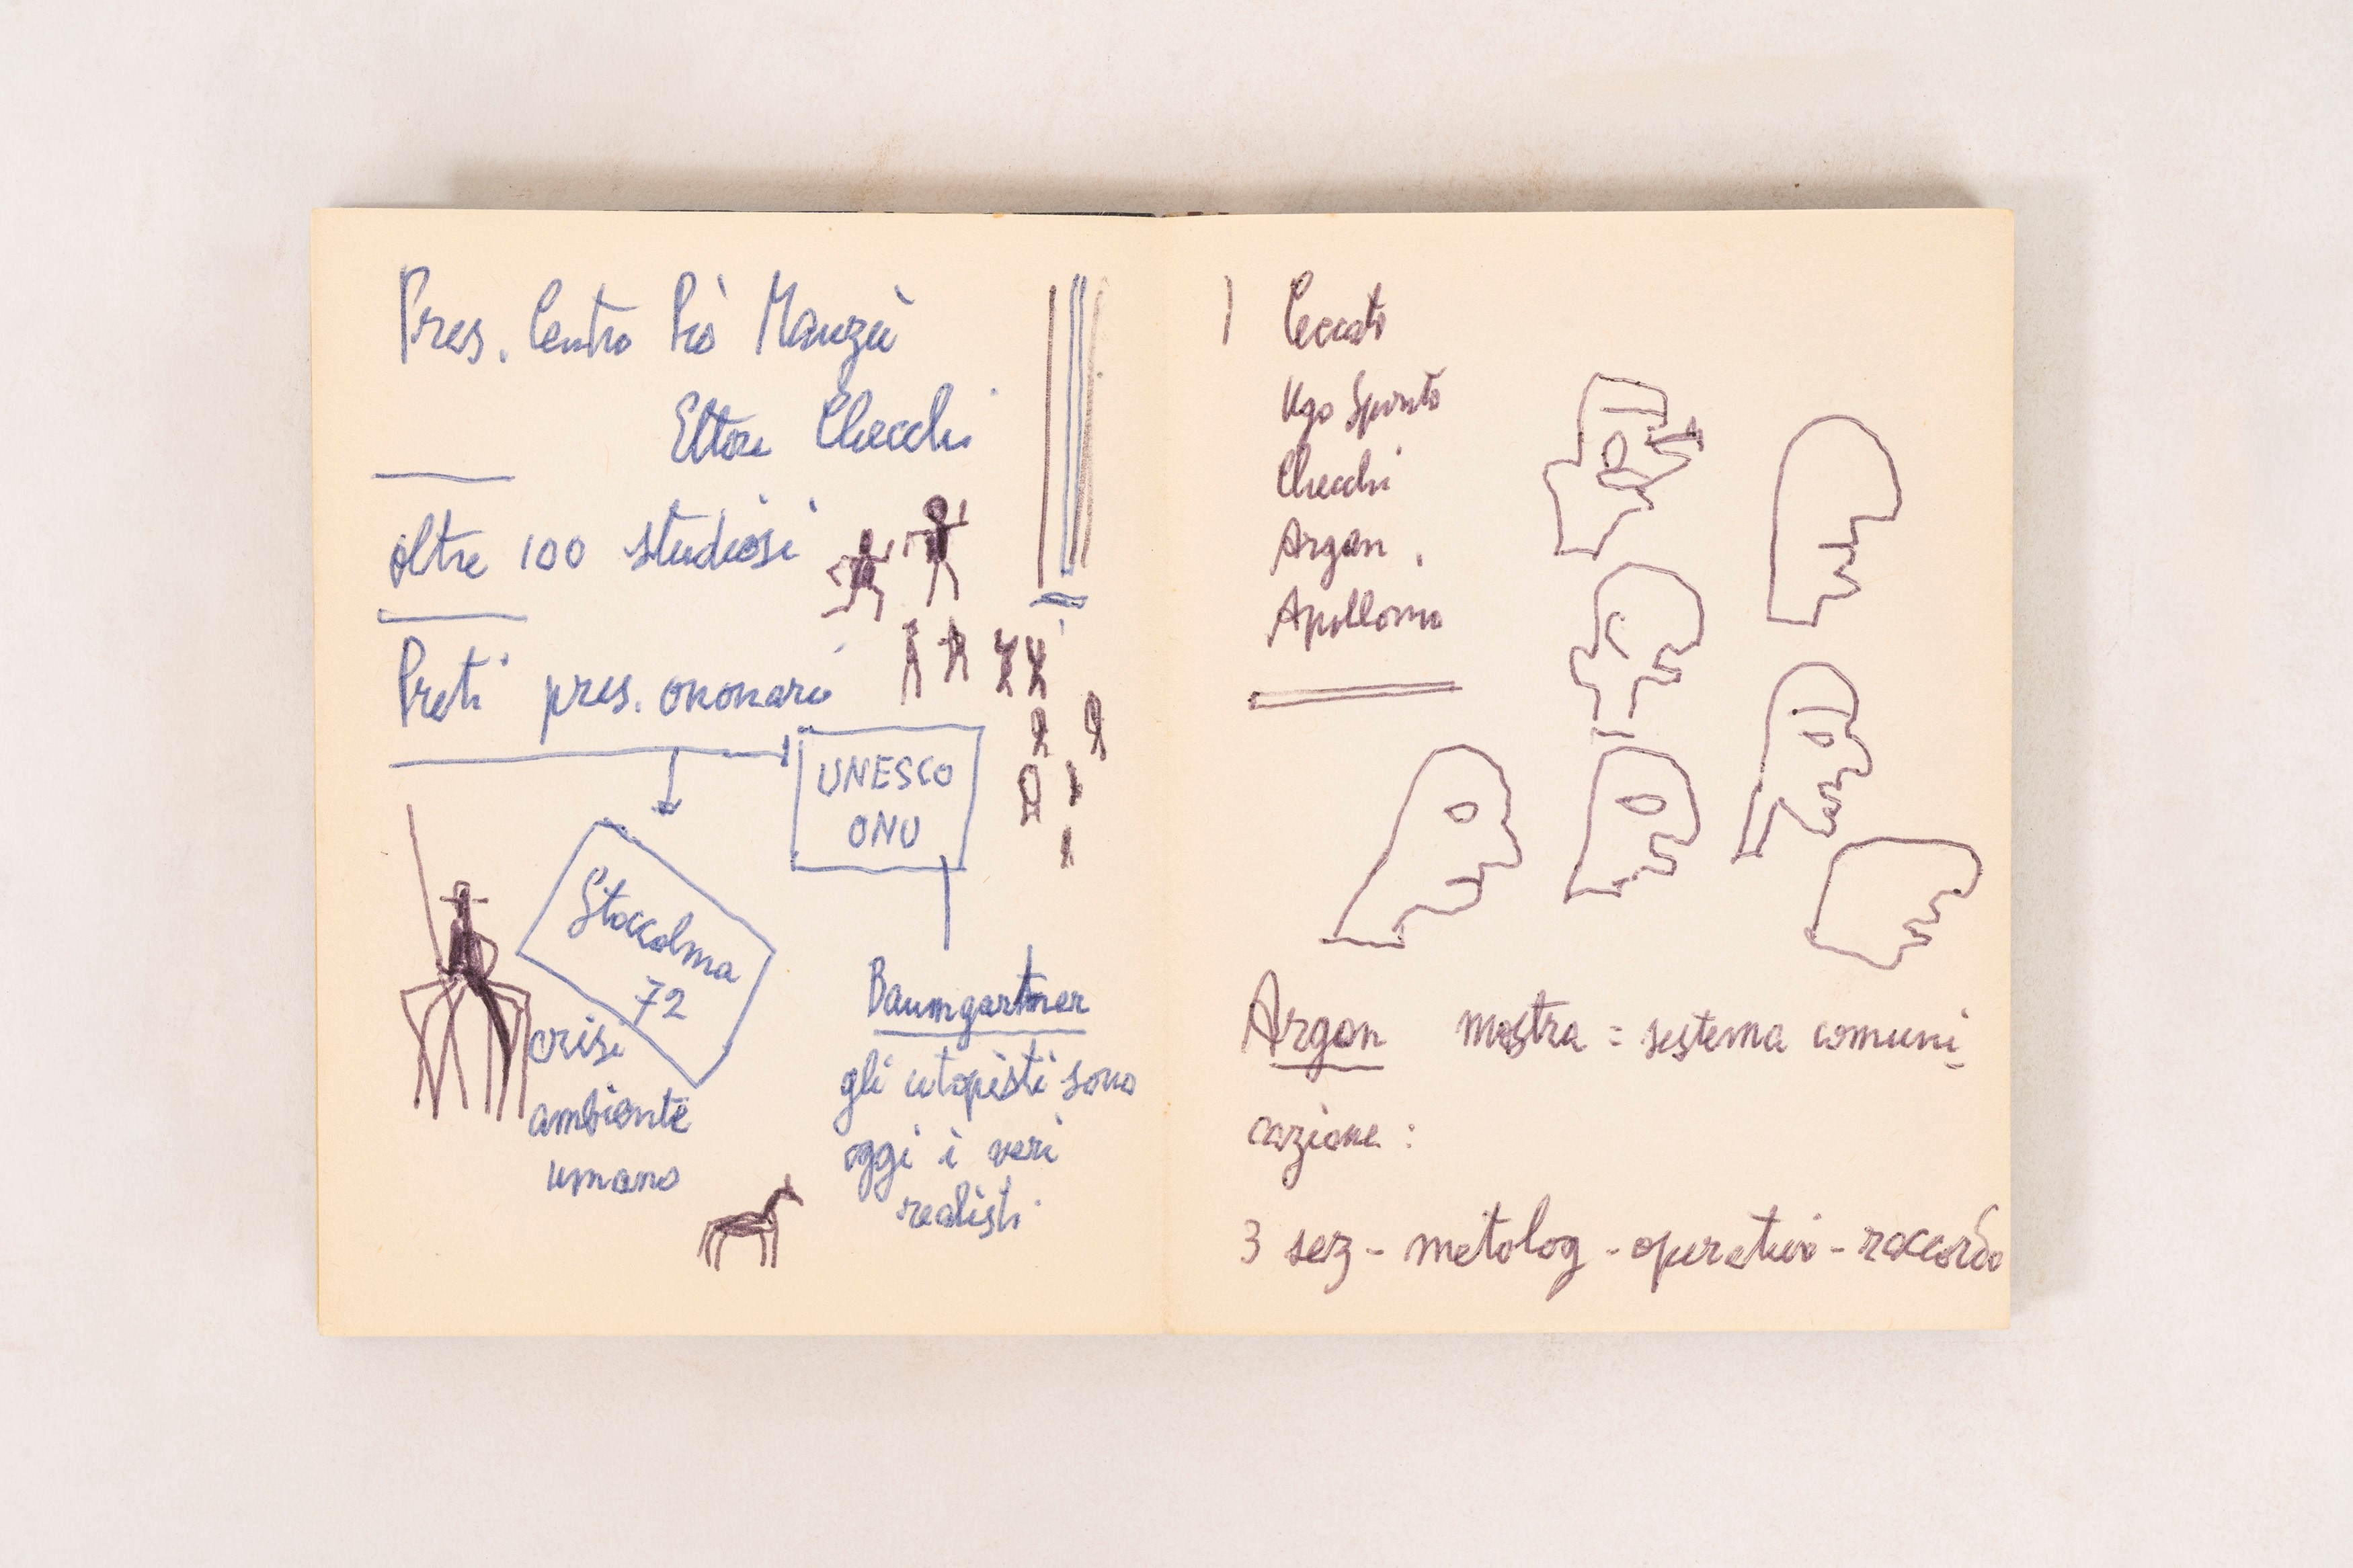 Pres. Centro Pio Manzù
Ettore Checchi
oltre 100 studiosi
Preti pres. ononario
UNESCO
ONU
Stoccolma
72
crisi
ambiente
umano
Baumgartner
gli utopisti sono
oggi i veri
realisti
1 Ceccato
Ugo Spirito
Checchi
Argan.
Apollonio
Argan mostra = sistema comuni-
cazione:
3 sez - metolog - operativo - raccordo